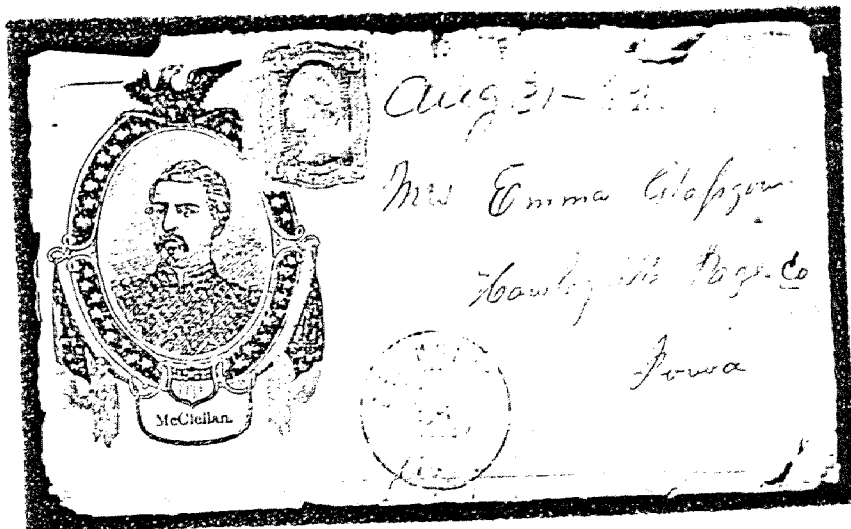 Aug 31-62.
Mrs Emma Glassgow
Hawleyville Page Co
Iowa
McClellan.